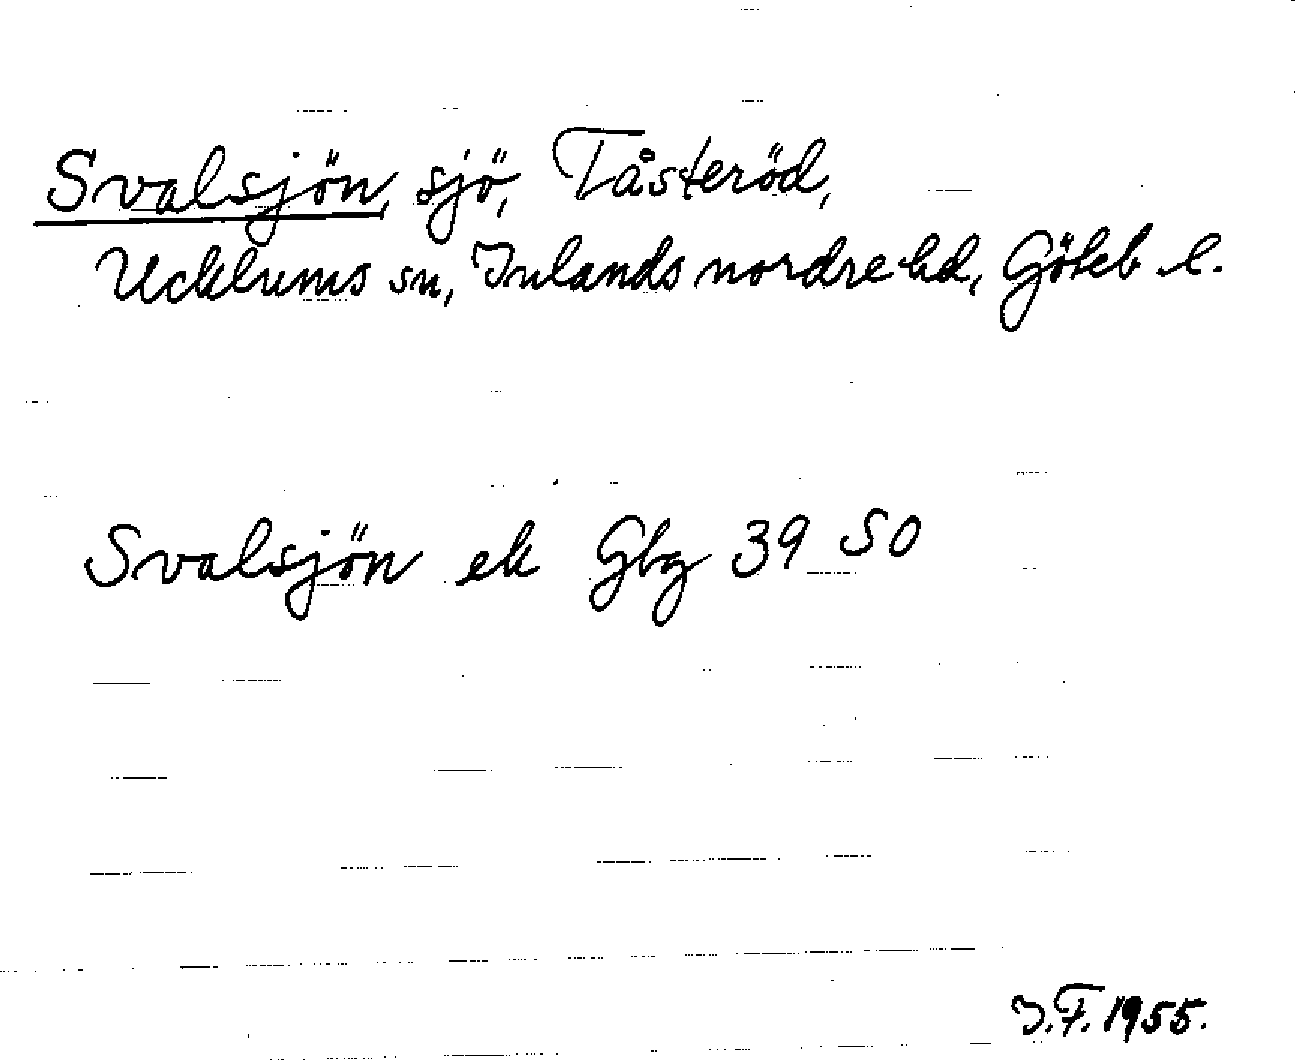 Svalsjön, sjö, Tåsteröd,
Ucklums sn, Inlands nordre hd, Göteb l.
Svalsjön ek Gbg 39 SO
J.F. 1955.